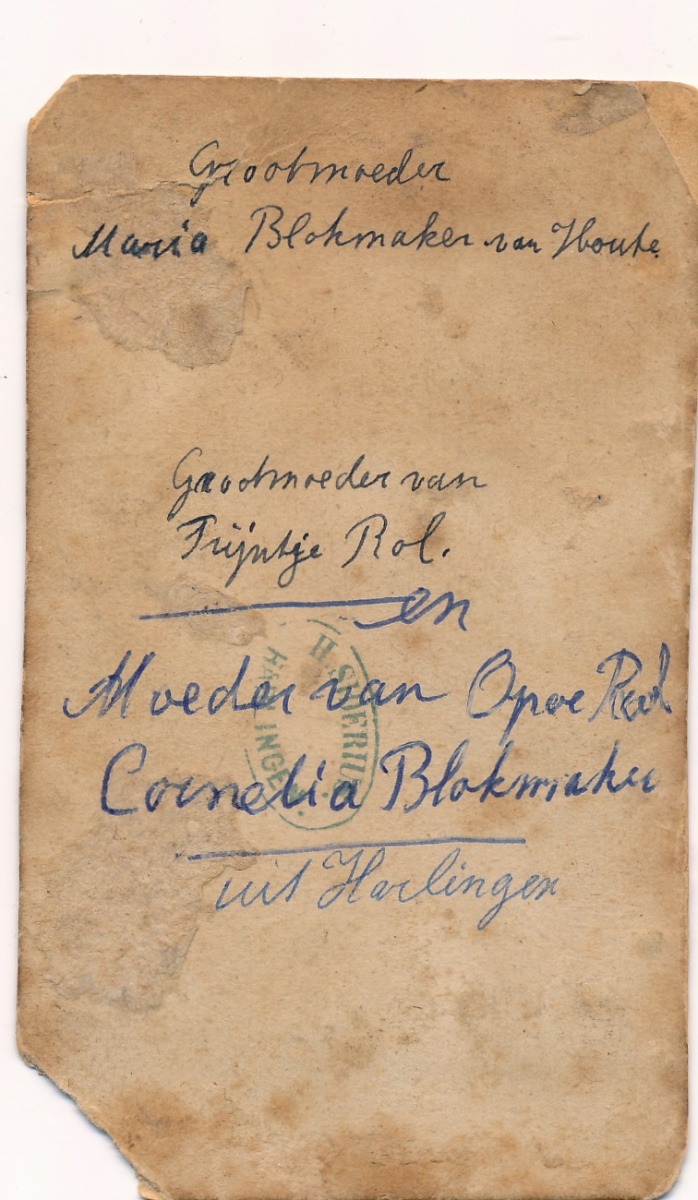 Grootmoeder
Maria Blokmaker van Houte
Grootmoeder van
Trijntje Rol.
en
Moeder van Opoe Rol
Cornelia Blokmaker
uit Harlingen
HARLINGEN.